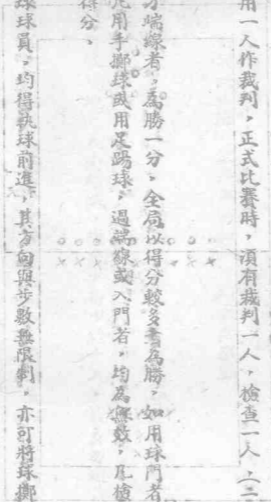 用一人作裁判，正式比賽時，須有裁判一人，檢查一人，（二
方端線者，為勝一分，全局以得分較多者為勝，如用球門者
凡用手擲球或用足踢球，過端線或入門者，均為無效，凡檢
得分，
球球員，均得執球前進，其方向與步數無限制，亦可將球擲